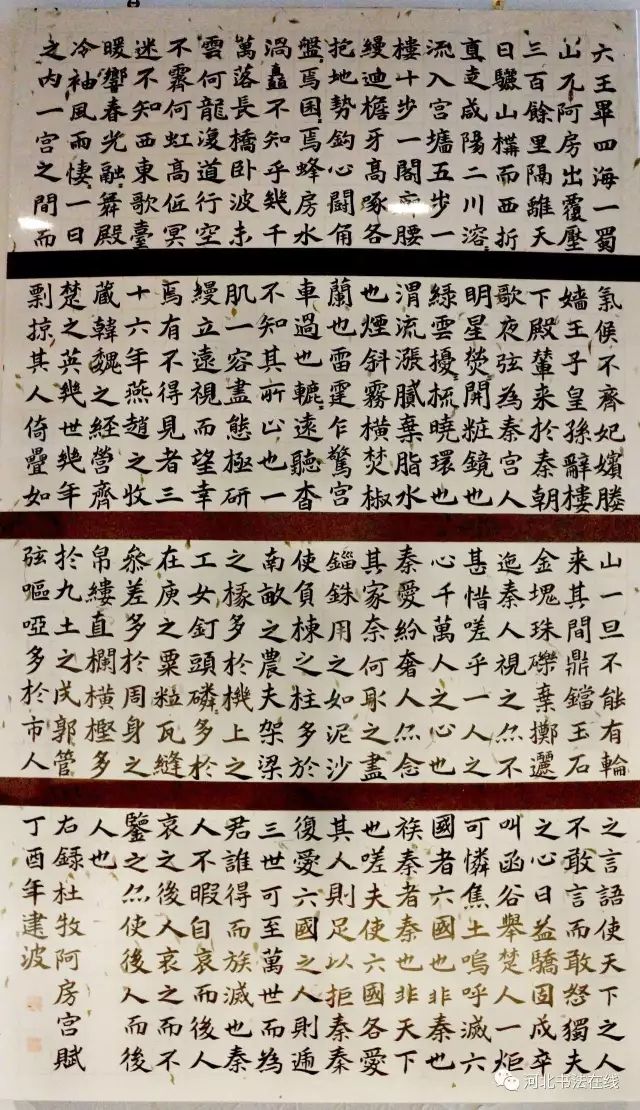 六王畢四海一蜀
山兀阿房出覆壓
三百餘里隔離天
日驪山構而西折
直走咸陽二川溶
流入宮墻五步一
樓十步一閣廊腰
縵迴檐牙高啄各
抱地勢鈎心鬪角
盤焉囷焉蜂房水
渦矗不知乎幾千
萬落長橋卧波未
雲何龍復道行空
不霽何虹高低冥
迷不知西東歌臺
暖響春光融舞殿
冷袖風雨悽一日
之内一宮之間而
氣候不齊妃嬪媵
嬙王子皇孫辭樓
下殿輦来於秦朝
歌夜弦為秦宮人
明星熒開粧鏡也
綠雲擾梳曉環也
渭流漲膩棄脂水
也煙斜霧橫焚椒
蘭也雷霆乍驚宮
車過也轆遠聽杳
不知其所止也一
肌一容盡態極研
縵立遠視而望幸
焉有不得見者三
十六年燕趙之收
藏韓魏之經營齊
楚之英幾世幾年
剽掠其人倚疊如
山一旦不能有輪
来其間鼎鐺玉石
金塊珠礫棄擲邐
迤秦人視之亦不
甚惜嗟乎一人之
心千萬人之心也
秦愛紛奢人亦念
其家奈何取之盡
錙銖用之如泥沙
使負棟之柱多於
南畝之農夫架梁
之椽多於機上之
工女釘頭磷多於
在庾之粟粒瓦縫
參差多於周身之
帛縷直欄橫檻多
於九土之戍郭管
弦嘔啞多於市人
之言語使天下之人
不敢言而敢怒獨夫
之心日益驕固戍卒
叫函谷舉楚人一炬
可憐焦土嗚呼滅六
國者六國也非秦也
族秦者秦也非天下
也嗟夫使六國各愛
其人則足以拒秦秦
復愛六國之人則遞
三世可至萬世而為
君誰得而族滅也秦
人不暇自哀而後人
哀之後人哀之而不
鑒之亦使後人而後
人也
右錄杜牧阿房宮賦
丁酉年建波
河北书法在线